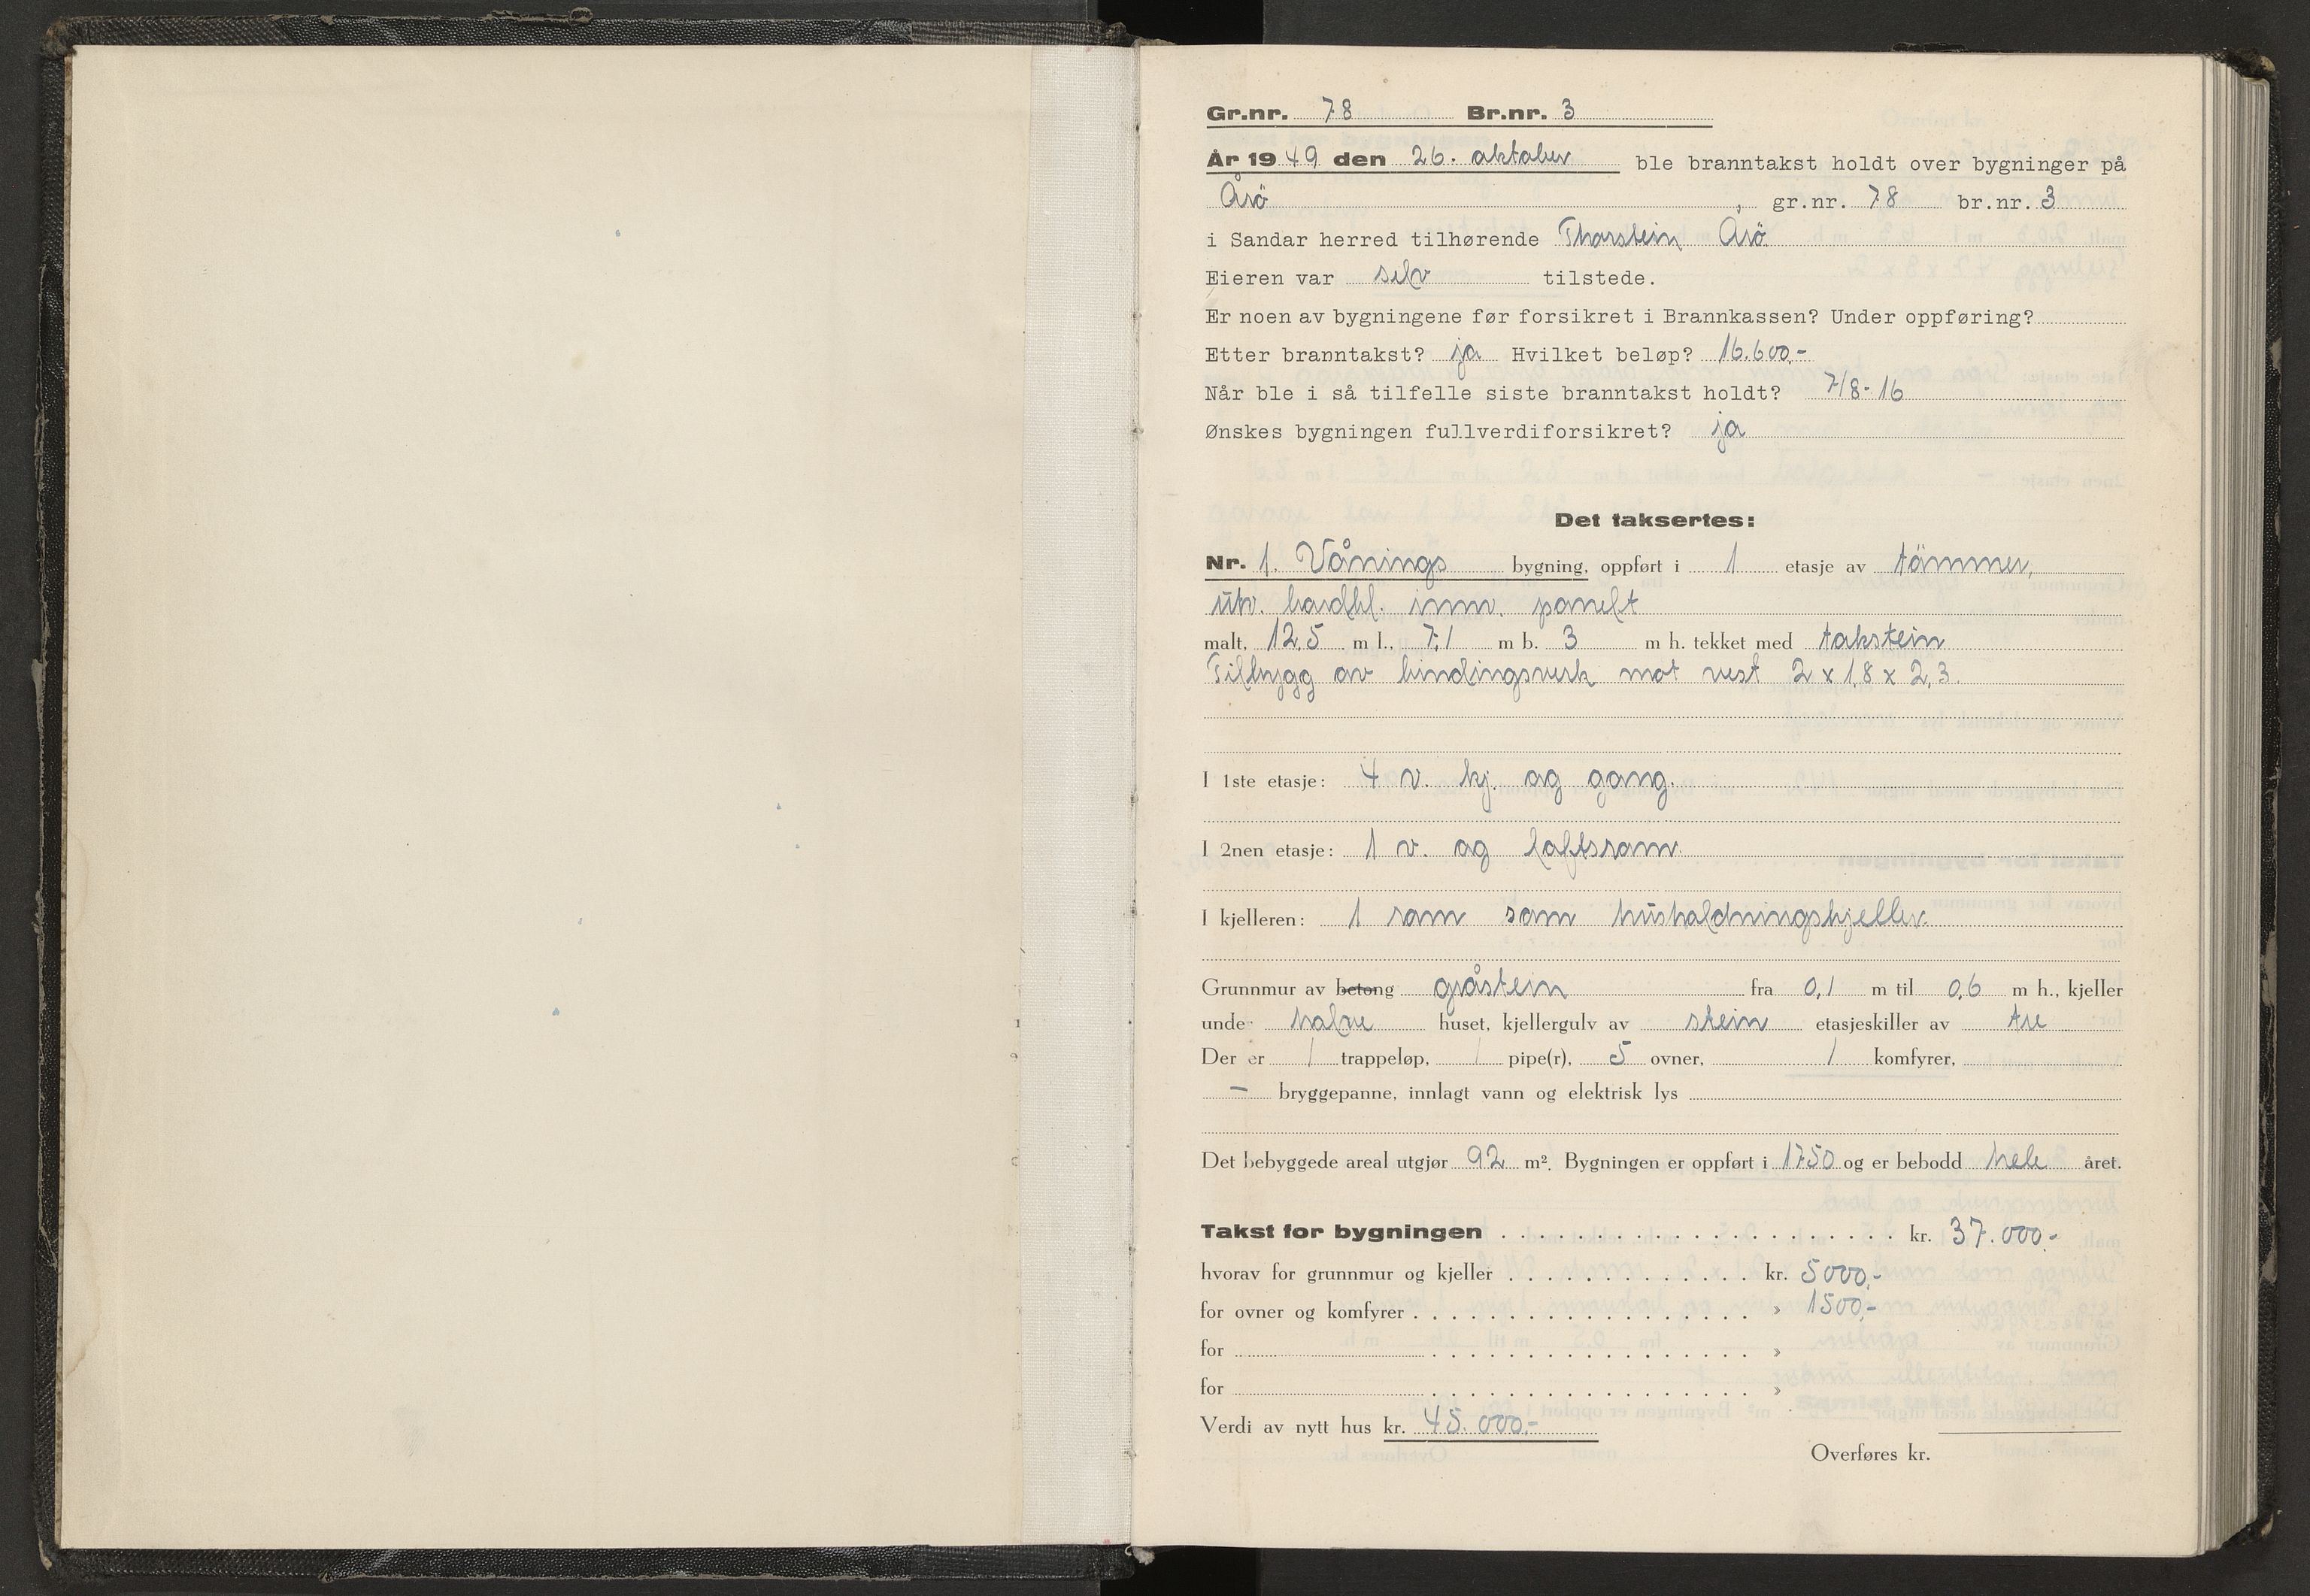 Gr.nr. 78 Br.nr. 3
År 1949 den 26. oktober ble branntakst holdt over bygninger på
Årö, gr.nr. 78 br.nr. 3
i Sandar herred tilhørende Thorstein Årö
Eieren var selv tilstede.
Er noen av bygningene før forsikret i Brannkassen? Under oppføring?
Etter branntakst? ja Hvilket beløp? 16.600,-
Når ble i så tilfelle siste branntakst holdt? 7/8-16
Ønskes bygningen fullverdiforsikret? ja
Det taksertes:
Nr. 1. Vånings bygning, oppført i 1 etasje av tömmer,
utv. bordkl. innv. panelt
malt, 12,5 m l., 7,1 m b. 3 m h. tekket med takstein
Tilbygg av bindingsverk mot vest 2 x 1,8 x 2,3.
I 1ste etasje: 4 v. kj. og gang.
I 2nen etasje: 1 v. og loftsrom.
I kjelleren: 1 rom som husholdningskjeller.
Grunnmur av betong gråstein fra 0,1 m til 0,6 m h., kjeller
under halve huset, kjellergulv av stein etasjeskiller av tre
Der er 1 trappeløp, 1 pipe(r), 5 ovner, 1 komfyrer,
— bryggepanne, innlagt vann og elektrisk lys
Det bebyggede areal utgjør 92 m². Bygningen er oppført i 1750 og er bebodd hele året.
Takst for bygningen . . . . . . . . . . . . . . . . . . . . . kr. 37.000.-
hvorav for grunnmur og kjeller . . . . . . . . . . . . . kr. 5000,-
for ovner og komfyrer . . . . . . . . . . . . . . . . . . » 1500,-
for . . . . . . . . . . . . . . . . . »
for . . . . . . . . . . . . . . . . . »
Verdi av nytt hus kr. 45.000,-
Overføres kr.